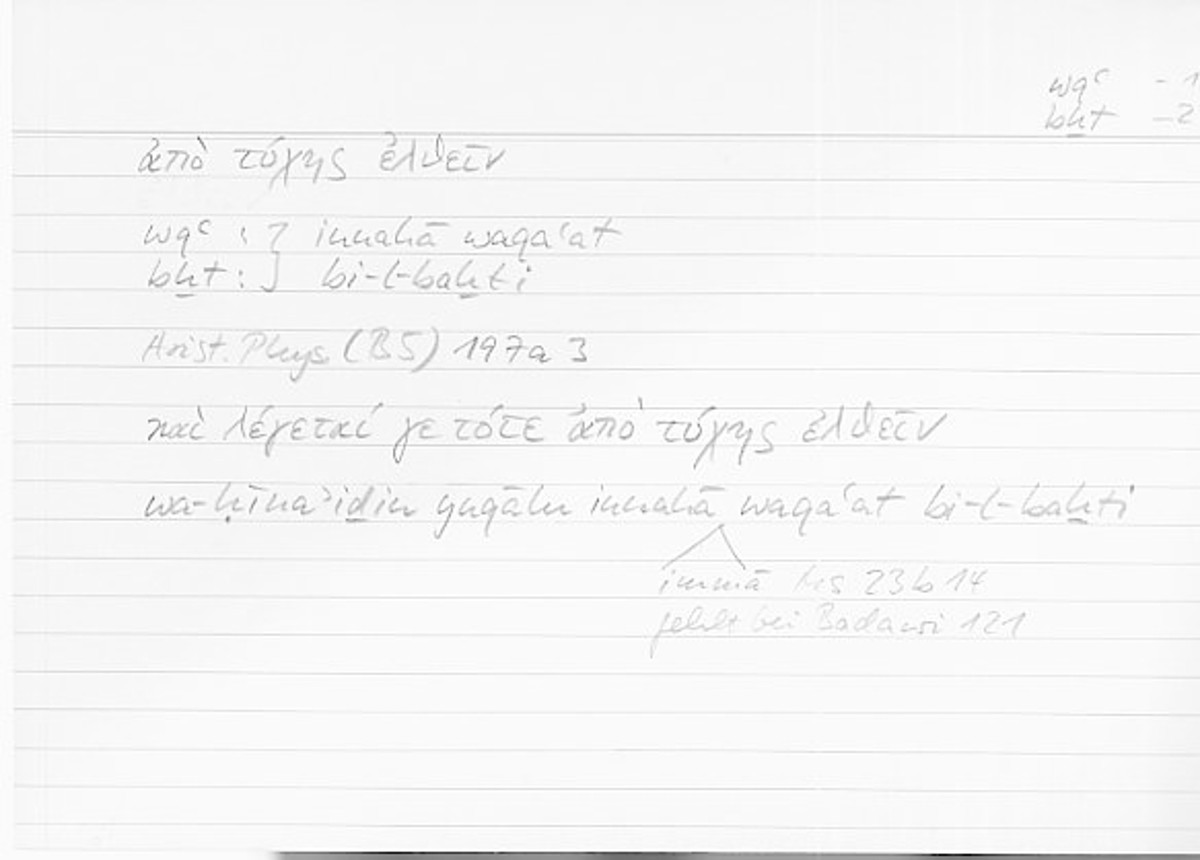 wqʿ - 1
bḫt - 2
ἀπὸ τύχης ἐλθεῖν
wqʿ : } innahā waqaʿat
bḫt : } bi-l-baḫti
Arist. Phys (B5) 197a 3
καὶ λέγεταί γε τότε ἀπὸ τύχης ἐλθεῖν
wa-ḥīnaʾiḏin yuqālu innahā waqaʿat bi-l-baḫti
immā Hs 23b 14
fehlt bei Badawi 121